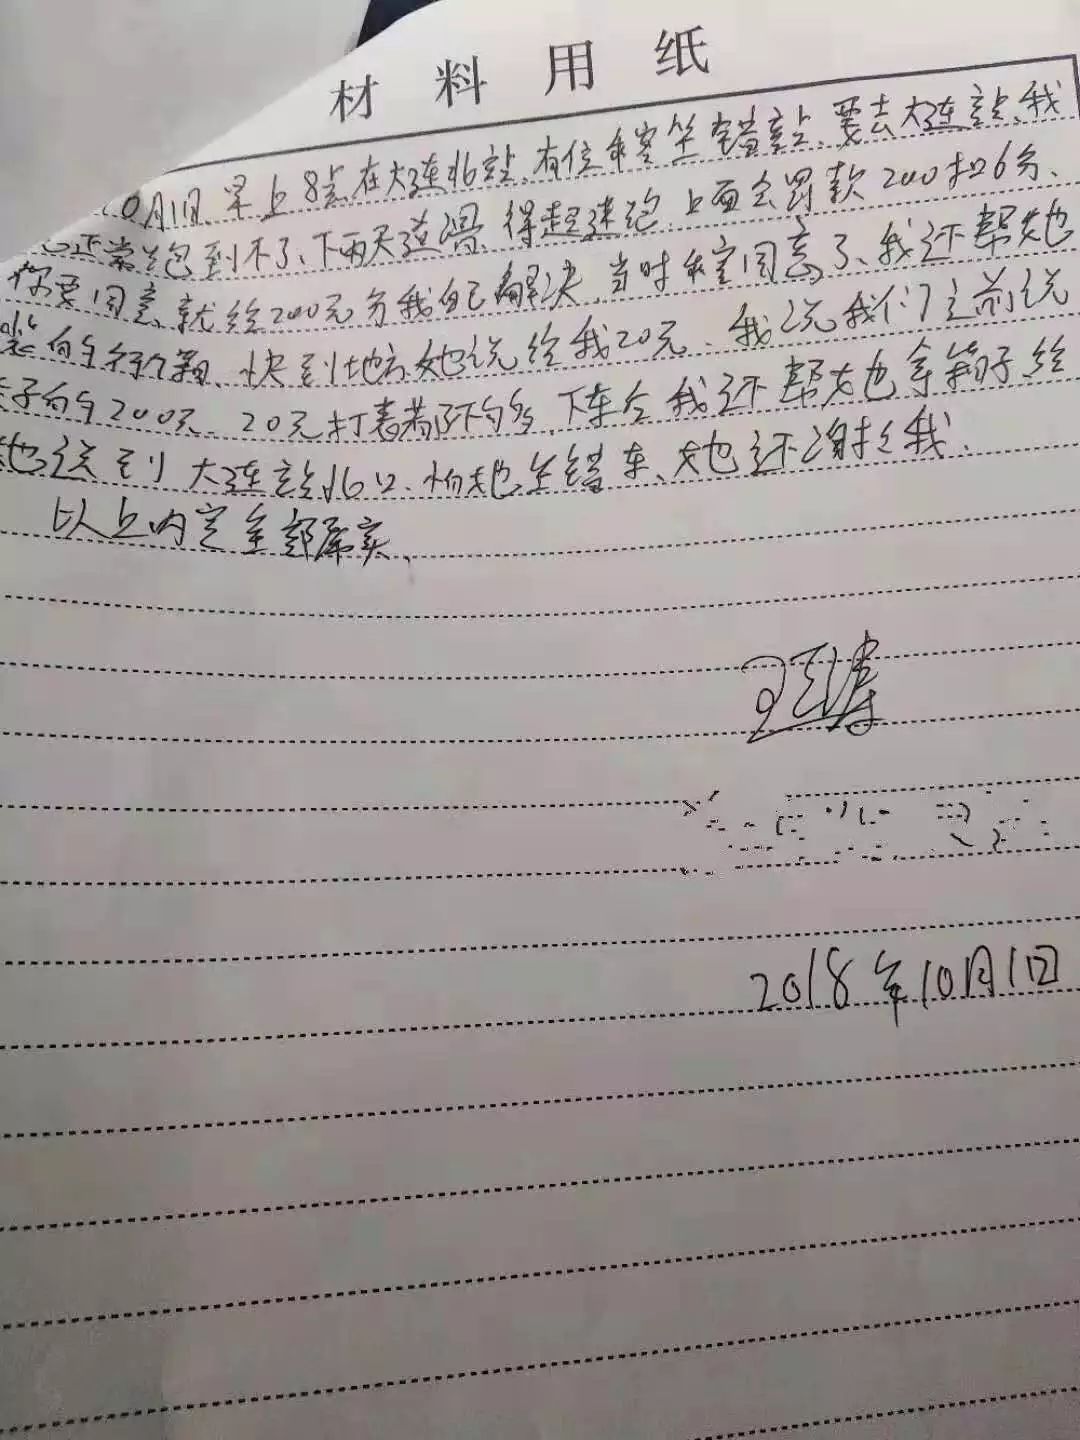 材料用纸
10月1日早上8点在大连北站、有位乘客坐错站、要去大连站、我
正常跑到不了、下雨天道滑、得超速跑、上面会罚款200扣6分、
你要同意、就给200元分我自己解决、当时乘客同意了、我还帮她
装的行李箱、快到地方她说给我20元、我说我们之前说
好的200元、20元打表都不够、下车后我还帮她拿箱子给
她送到大连站北口、怕她坐错车、她还谢谢我、
以上内容全部属实、
2018年10月1日